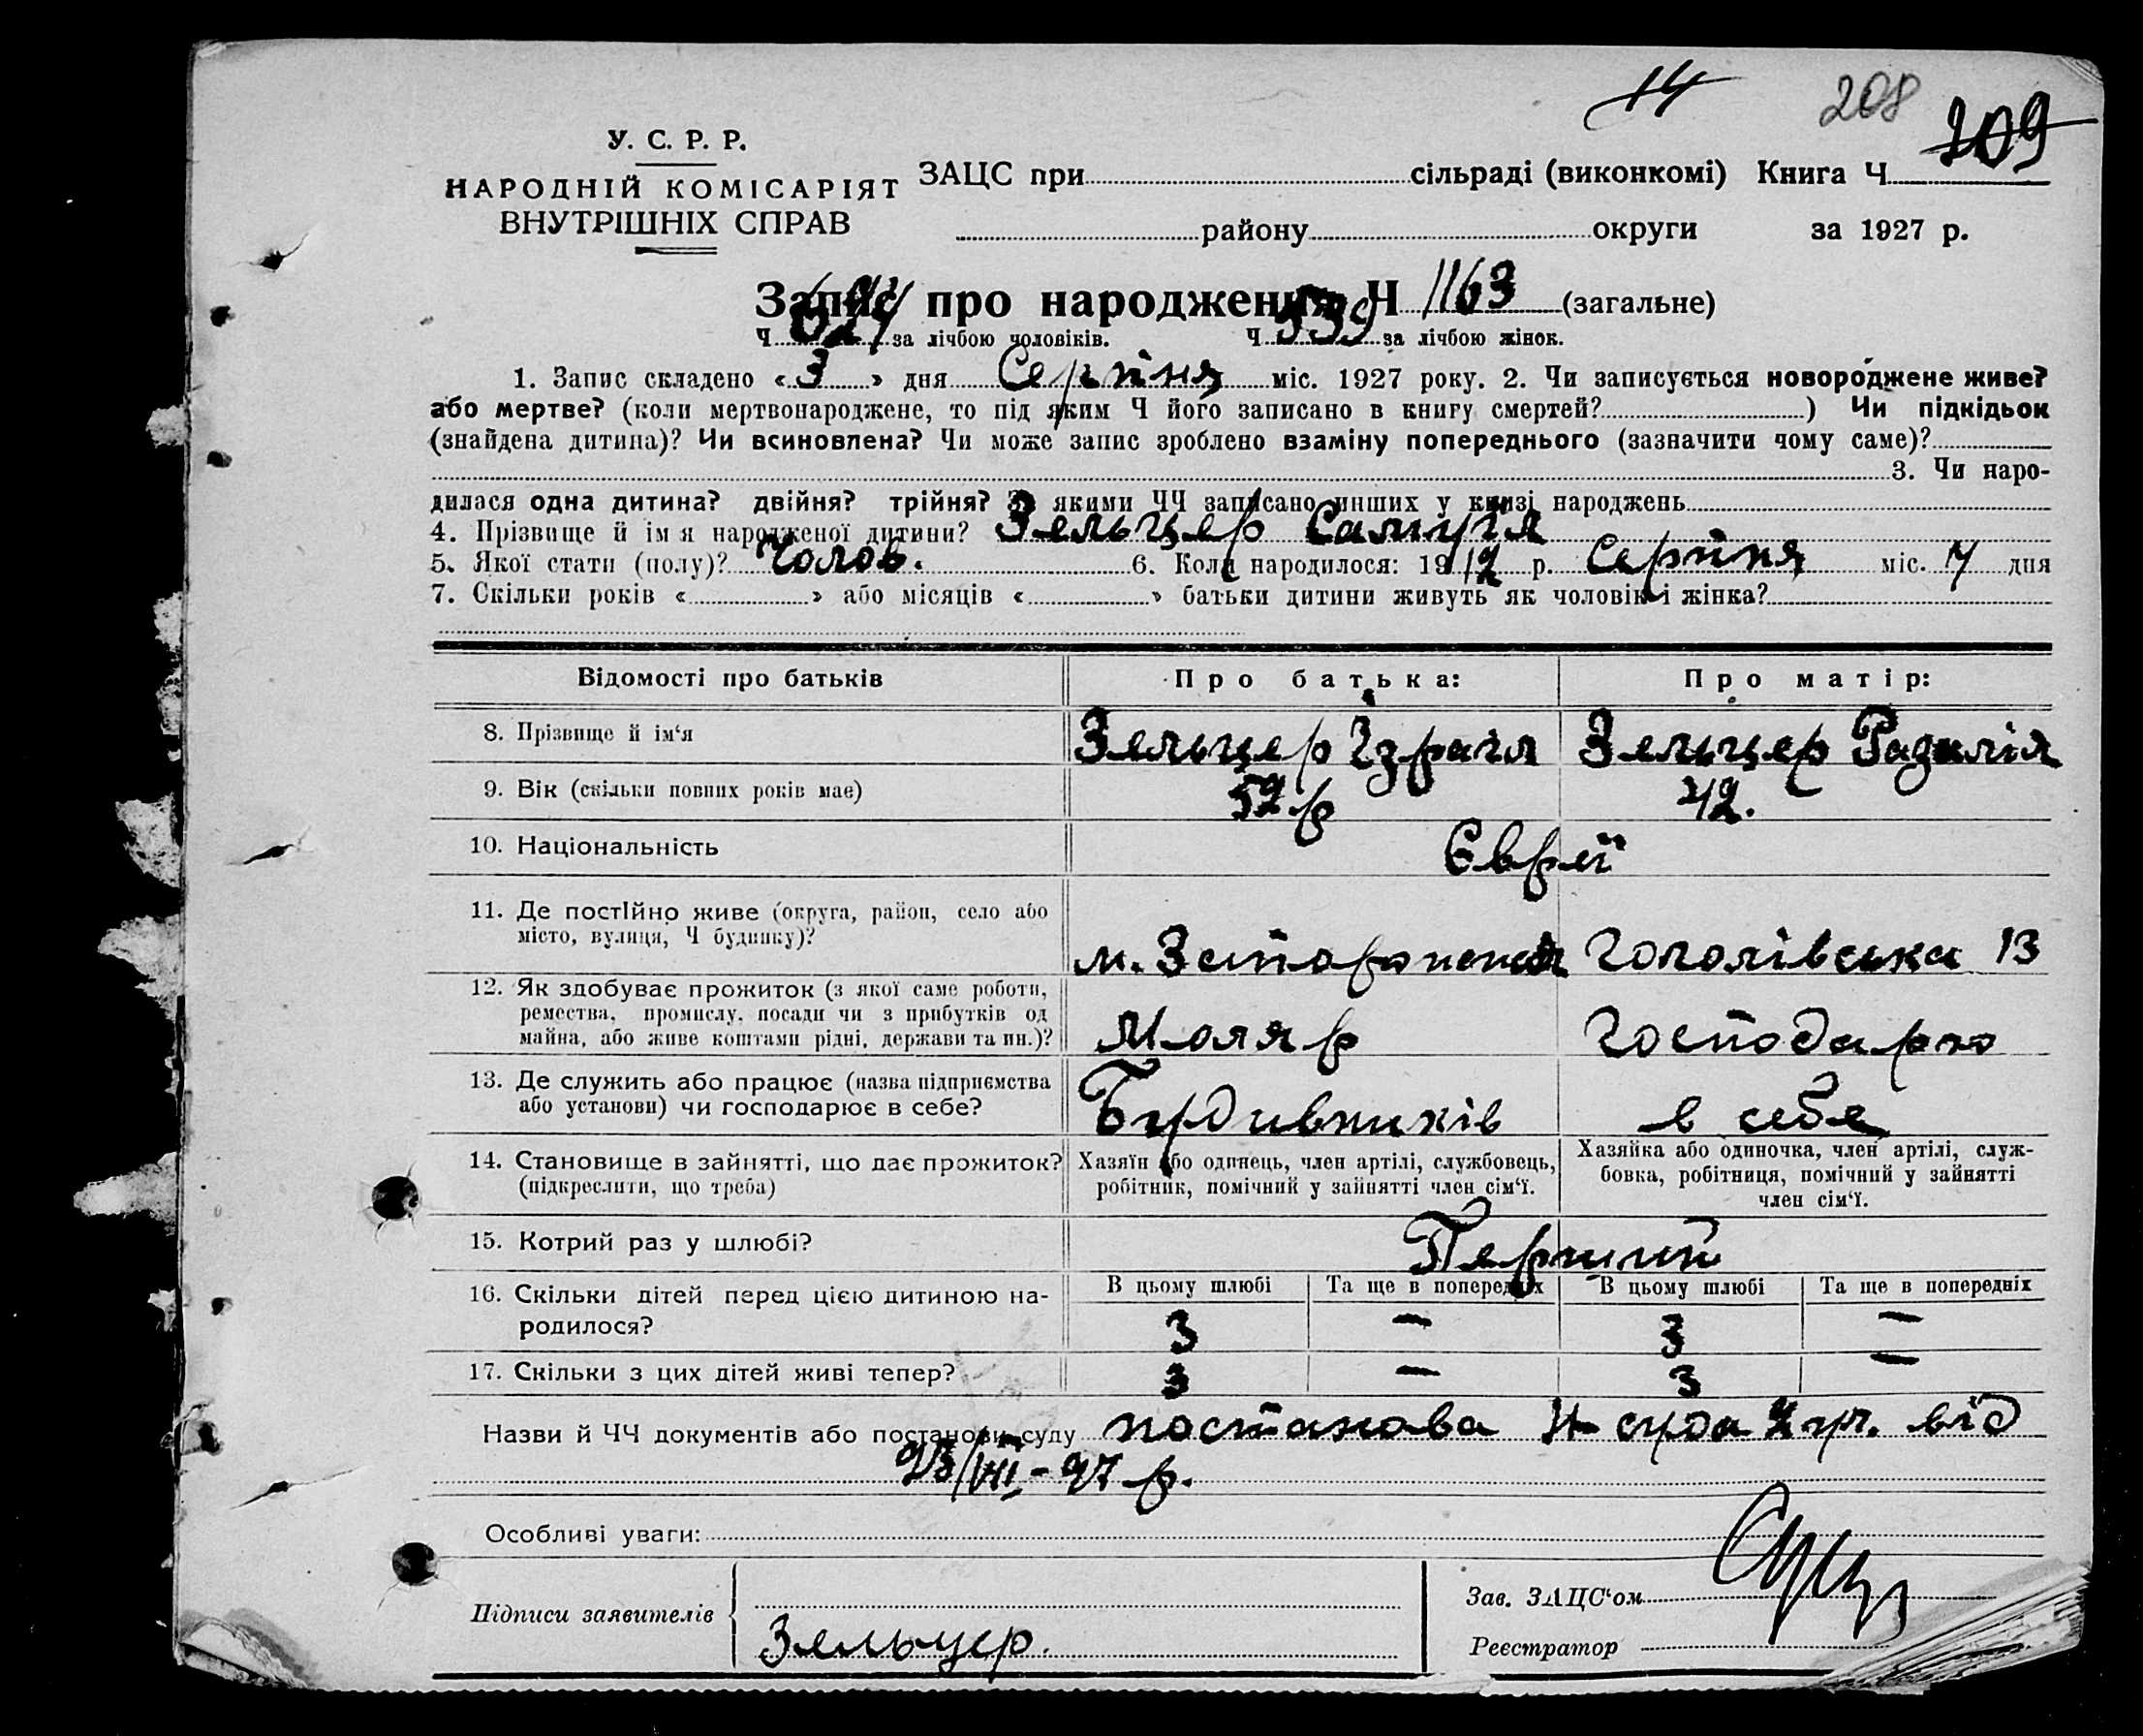 14 208 209
У. С. Р. Р.
НАРОДНІЙ КОМІСАРІЯТ
ВНУТРІШНІХ СПРАВ
ЗАЦС при сільраді (виконкомі) Книга Ч
району округи за 1927 р.
Запис про народження Ч 1163 (загальне)
Ч 624 за лічбою чоловіків. Ч 539 за лічбою жінок.
1. Запис складено «3» дня Серпня міс. 1927 року. 2. Чи записується новороджене живе?
або мертве? (коли мертвонароджене, то під яким Ч його записано в книгу смертей? ) Чи підкідьок
(знайдена дитина)? Чи всиновлена? Чи може запис зроблено взаміну попереднього (зазначити чому саме)?
3. Чи наро-
дилася одна дитина? двійня? трійня? З якими ЧЧ записано инших у книзі народжень
4. Прізвище й ім я народженої дитини? Зельцер
5. Якої стати (полу)? Чолов. 6. Коли народилося: 1912 р. Серпня міс. 7 дня
7. Скільки років « » або місяців « » батьки дитини живуть як чоловік і жінка?
Відомості про батьків Про батька: Про матір:
8. Прізвище й ім‘я Зельцер Ізраіл Зельцер Разалія
9. Вік (скільки повних років має) 52 р 42.
10. Національність Євреї
11. Де постійно живе (округа, район, село або
місто, вулиця, Ч будинку)? м. Гоголівська 13
12. Як здобуває прожиток (з якої саме роботи,
ремества, промислу, посади чи з прибутків од
майна, або живе коштами рідні, держави та ин.)? Моляр Господарю
13. Де служить або працює (назва підприємства
або установи) чи господарює в себе? Будивників в себе
14. Становище в зайнятті, що дає прожиток?
(підкреслити, що треба)
Хазяїн або одинець, член артілі, службовець,
робітник, помічний у зайнятті член сім‘ї.
Хазяйка або одиночка, член артілі, служ-
бовка, робітниця, помічний у зайнятті
член сім‘ї.
15. Котрий раз у шлюбі? Перший
16. Скільки дітей перед цією дитиною на-
родилося?
В цьому шлюбі Та ще в попередніх В цьому шлюбі Та ще в попередніх
3 — 3 —
17. Скільки з цих дітей живі тепер? 3 — 3 —
Назви й ЧЧ документів або постанови суду постанова суда від
р.
Особливі уваги:
Підписи заявителів Зельцер.
Зав. ЗАЦС‘ом
Реєстратор